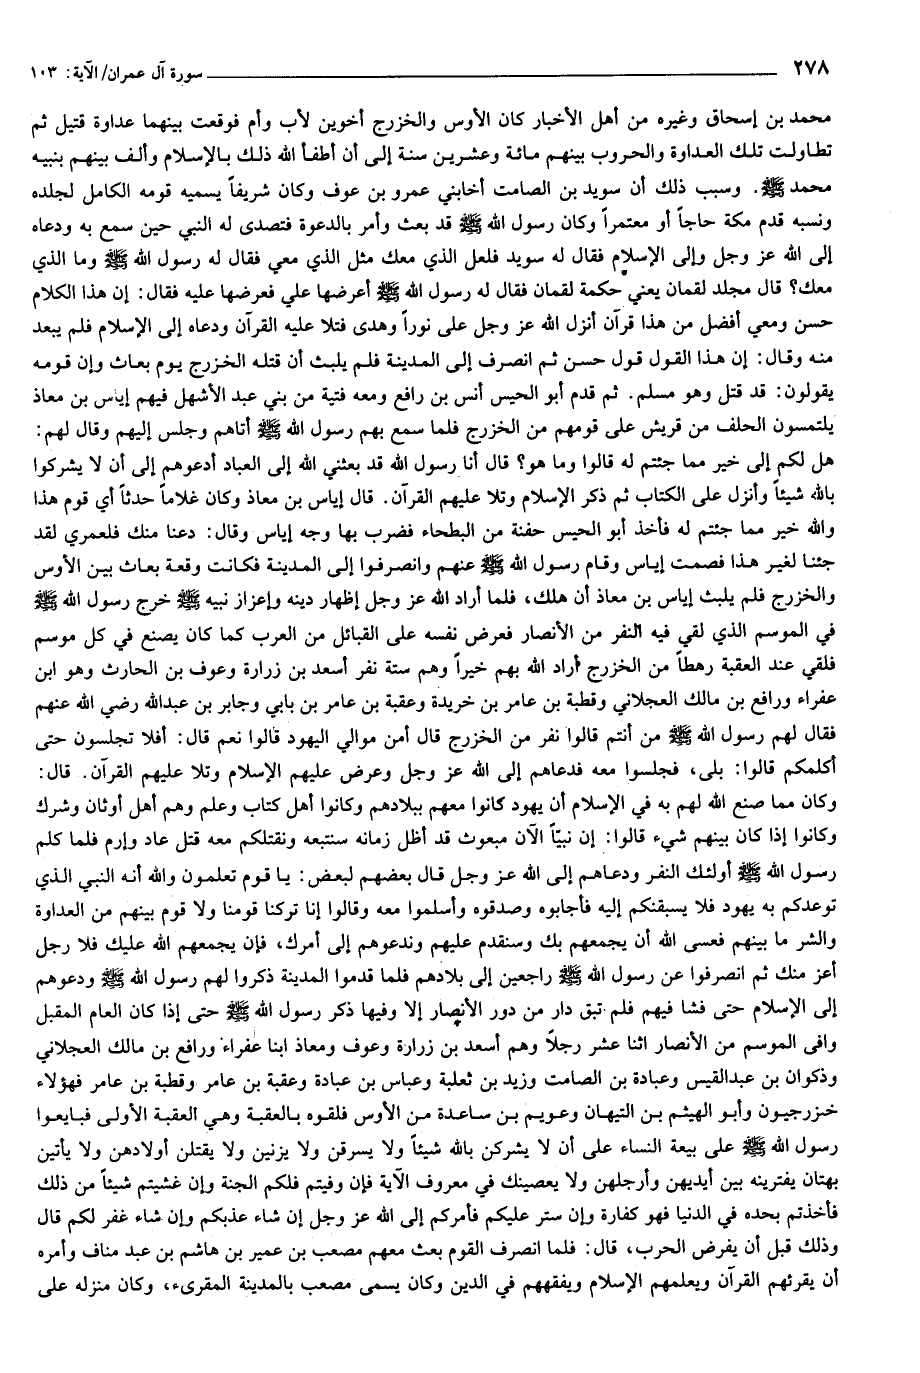 ٢٧٨ سورة آل عمران/ الآية: ١٠٣
محمد بن إسحاق وغيره من أهل الأخبار كان الأوس والخزرج أخوين لأب وأم فوقعت بينهما عداوة قتيل ثم
تطاولت تلك العداوة والحروب بينهم مائة وعشرين سنة إلى أن أطفأ الله ذلك بالإسلام وألف بينهم بنبيه
محمد ﷺ. وسبب ذلك أن سويد بن الصامت أخابني عمرو بن عوف وكان شريفاً يسميه قومه الكامل لجلده
ونسبه قدم مكة حاجاً أو معتمراً وكان رسول الله ﷺ قد بعث وأمر بالدعوة فتصدى له النبي حين سمع به ودعاه
إلى الله عز وجل وإلى الإسلام فقال له سويد فلعل الذي معك مثل الذي معي فقال له رسول الله ﷺ وما الذي
معك؟ قال مجلد لقمان يعني حكمة لقمان فقال له رسول الله ﷺ أعرضها علي فعرضها عليه فقال: إن هذا الكلام
حسن ومعي أفضل من هذا قرآن أنزل الله عز وجل على نوراً وهدى فتلا عليه القرآن ودعاه إلى الإسلام فلم يبعد
منه وقال: إن هذا القول قول حسن ثم انصرف إلى المدينة فلم يلبث أن قتله الخزرج يوم بعاث وإن قومه
يقولون: قد قتل وهو مسلم. ثم قدم أبو الحيس أنس بن رافع ومعه فتية من بني عبد الأشهل فيهم إياس بن معاذ
يلتمسون الحلف من قريش على قومهم من الخزرج فلما سمع بهم رسول الله ﷺ أتاهم وجلس إليهم وقال لهم:
هل لكم إلى خير مما جئتم له قالوا وما هو؟ قال أنا رسول الله قد بعثني الله إلى العباد أدعوهم إلى أن لا يشركوا
بالله شيئاً وأنزل على الكتاب ثم ذكر الإسلام وتلا عليهم القرآن. قال إياس بن معاذ وكان غلاماً حدثاً أي قوم هذا
والله خير مما جئتم له فأخذ أبو الحيس حفنة من البطحاء فضرب بها وجه إياس وقال: دعنا منك فلعمري لقد
جئنا لغير هذا فصمت إياس وقام رسول الله ﷺ عنهم وانصرفوا إلى المدينة فكانت وقعة بعاث بين الأوس
والخزرج فلم يلبث إياس بن معاذ أن هلك، فلما أراد الله عز وجل إظهار دينه وإعزاز نبيه ﷺ خرج رسول الله ﷺ
في الموسم الذي لقي فيه النفر من الأنصار فعرض نفسه على القبائل من العرب كما كان يصنع في كل موسم
فلقي عند العقبة رهطاً من الخزرج أراد الله بهم خيراً وهم ستة نفر أسعد بن زرارة وعوف بن الحارث وهو ابن
عفراء ورافع بن مالك العجلاني وقطبة بن عامر بن خريدة وعقبة بن عامر بن بابي وجابر بن عبدالله رضي الله عنهم
فقال لهم رسول الله ﷺ من أنتم قالوا نفر من الخزرج قال أمن موالي اليهود قالوا نعم قال: أفلا تجلسون حتى
أكلمكم قالوا: بلى، فجلسوا معه فدعاهم إلى الله عز وجل وعرض عليهم الإسلام وتلا عليهم القرآن. قال:
وكان مما صنع الله لهم به في الإسلام أن يهود كانوا معهم ببلادهم وكانوا أهل كتاب وعلم وهم أهل أوثان وشرك
وكانوا إذا كان بينهم شيء قالوا: إن نبيّاً الآن مبعوث قد أظل زمانه سنتبعه ونقتلكم معه قتل عاد وإرم فلما كلم
رسول الله ﷺ أولئك النفر ودعاهم إلى الله عز وجل قال بعضهم لبعض: يا قوم تعلمون والله أنه النبي الذي
توعدكم به يهود فلا يسبقنكم إليه فأجابوه وصدقوه وأسلموا معه وقالوا إنا تركنا قومنا ولا قوم بينهم من العداوة
والشر ما بينهم فعسى الله أن يجمعهم بك وسنقدم عليهم وندعوهم إلى أمرك، فإن يجمعهم الله عليك فلا رجل
أعز منك ثم انصرفوا عن رسول الله ﷺ راجعين إلى بلادهم فلما قدموا المدينة ذكروا لهم رسول الله ﷺ ودعوهم
إلى الإسلام حتى فشا فيهم فلم تبق دار من دور الأنصار إلا وفيها ذكر رسول الله ﷺ حتى إذا كان العام المقبل
وافى الموسم من الأنصار اثنا عشر رجلاً وهم أسعد بن زرارة وعوف ومعاذ ابنا عفراء ورافع بن مالك العجلاني
وذكوان بن عبدالقيس وعبادة بن الصامت وزيد بن ثعلبة وعباس بن عبادة وعقبة بن عامر وقطبة بن عامر فهؤلاء
خزرجيون وأبو الهيثم بن التيهان وعويم بن ساعدة من الأوس فلقوه بالعقبة وهي العقبة الأولى فبايعوا
رسول الله ﷺ على بيعة النساء على أن لا يشركن بالله شيئاً ولا يسرقن ولا يزنين ولا يقتلن أولادهن ولا يأتين
بهتان يفترينه بين أيديهن وأرجلهن ولا يعصينك في معروف الآية فإن وفيتم فلكم الجنة وإن غشيتم شيئاً من ذلك
فأخذتم بحده في الدنيا فهو كفارة وإن ستر عليكم فأمركم إلى الله عز وجل إن شاء عذبكم وإن شاء غفر لكم قال
وذلك قبل أن يفرض الحرب، قال: فلما انصرف القوم بعث معهم مصعب بن عمير بن هاشم بن عبد مناف وأمره
أن يقرئهم القرآن ويعلمهم الإسلام ويفقههم في الدين وكان يسمى مصعب بالمدينة المقرىء، وكان منزله على